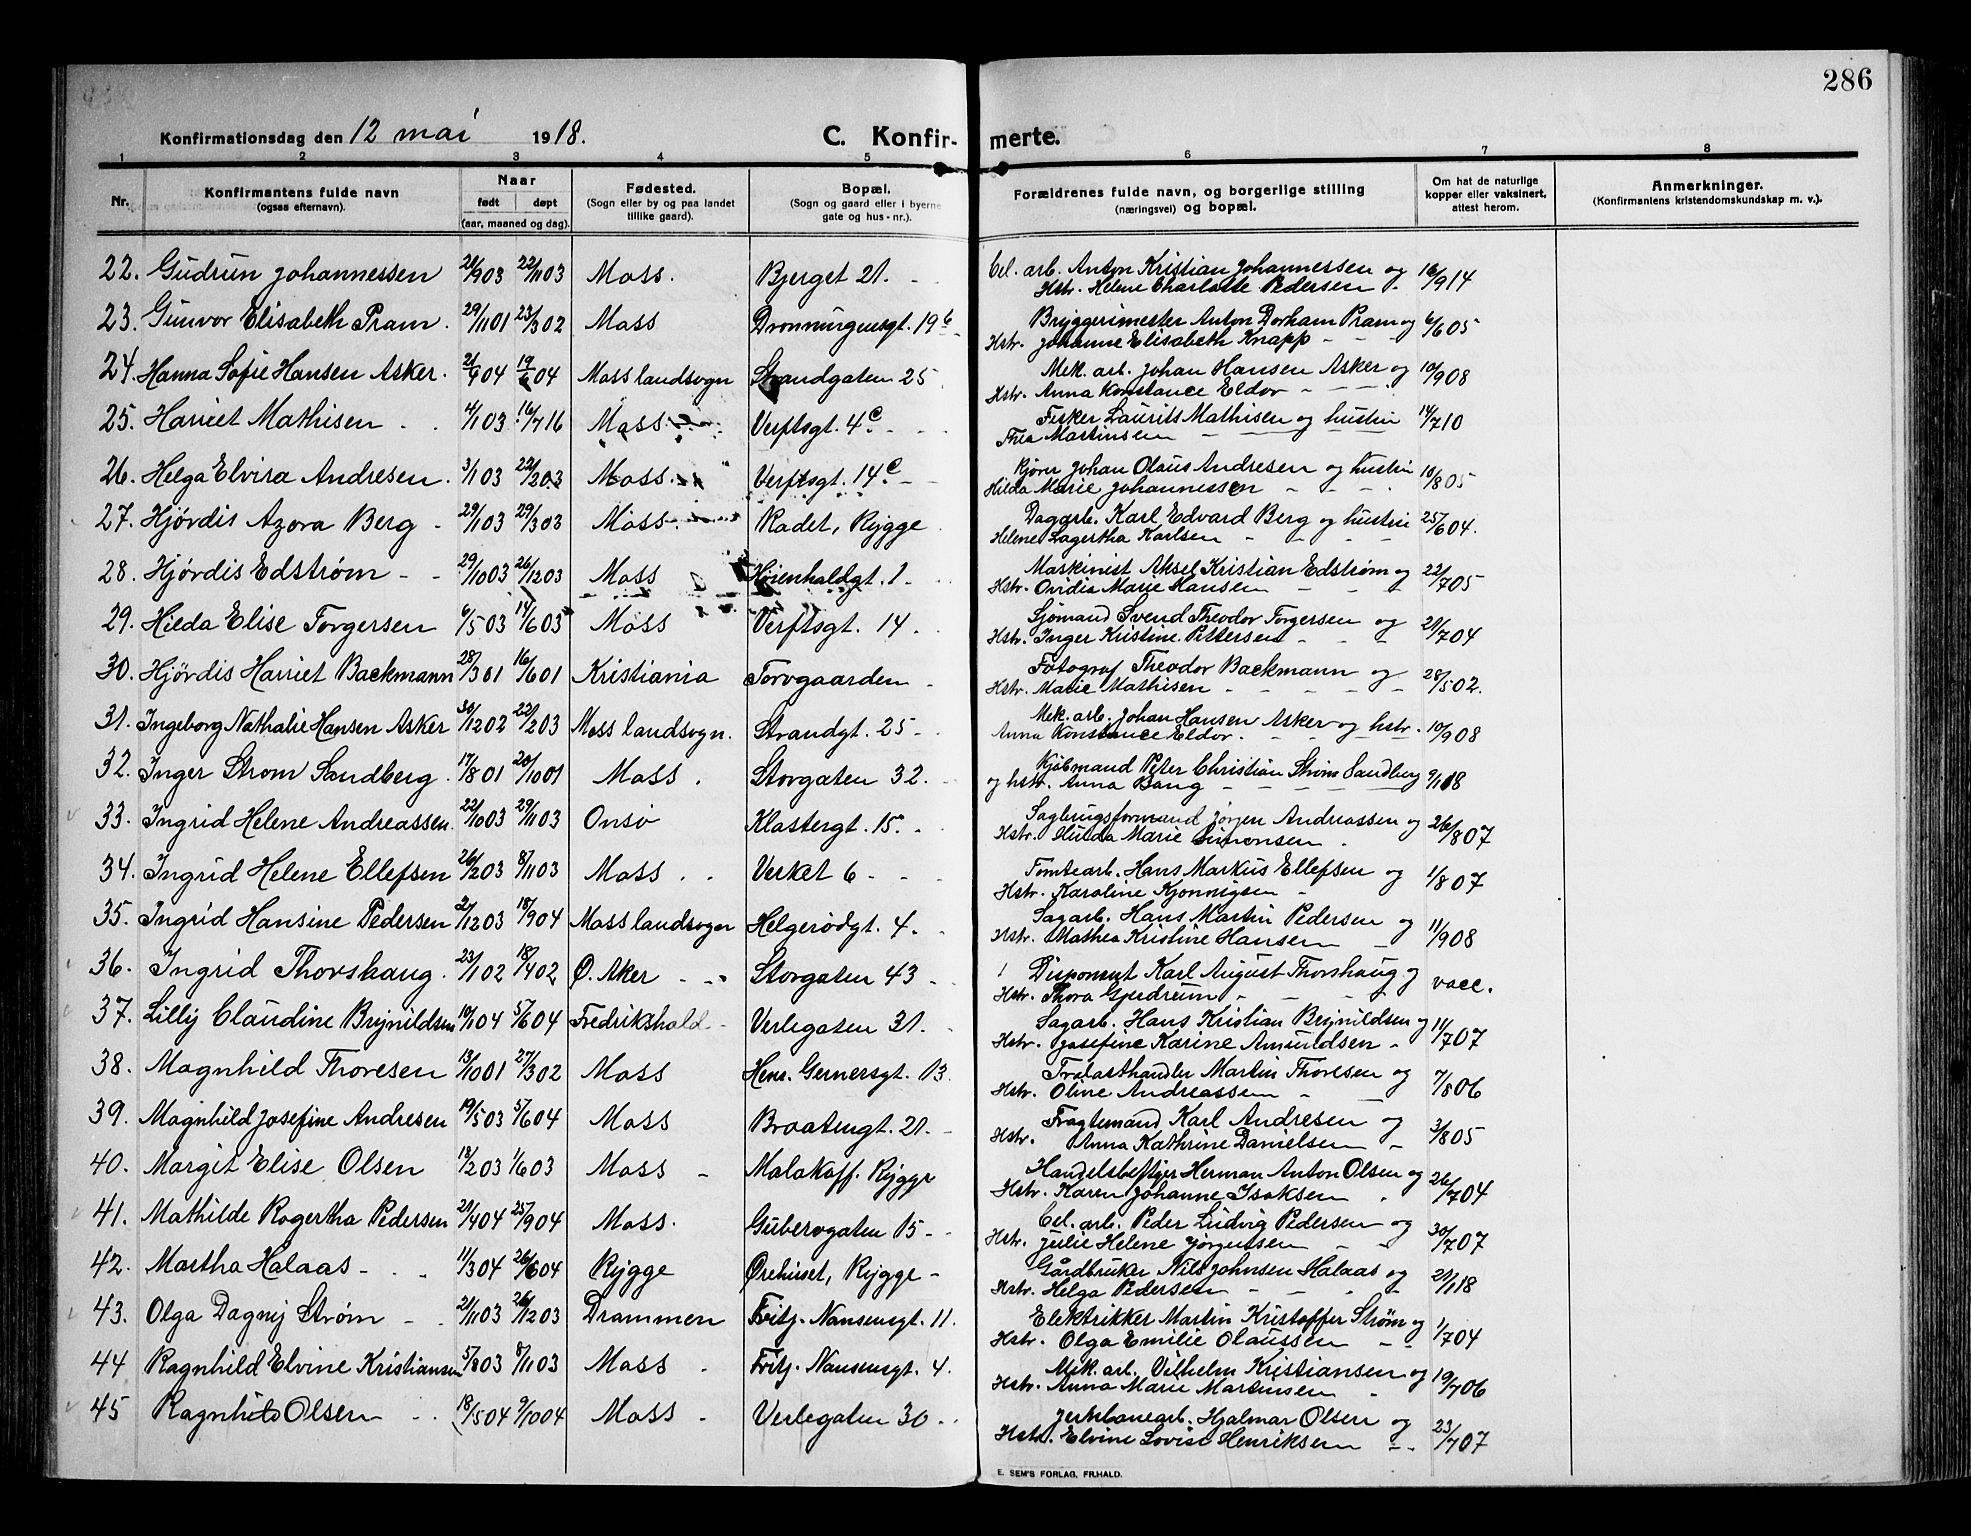 286
Konfirmationsdag den 12 mai 1918.
C. Konfirmerte.
1 2 3 4 5 6 7 8
Nr.
Konfirmantens fulde navn
(ogsaa efternavn).
Naar
født døpt
(aar, maaned og dag).
Fødested.
(Sogn eller by og paa landet
tillike gaard).
Bopæl.
(Sogn og gaard eller i byerne
gate og hus-nr.).
Forældrenes fulde navn, og borgerlige stilling
(næringsvei) og bopæl.
Om hat de naturlige
kopper eller vaksinert,
attest herom.
Anmerkninger.
(Konfirmantens kristendomskundskap m. v.).
22. Gudrun Johannessen 21/903 22/1103 Moss. Bjerget 21. Cel. arb. Anton Kristian Johannessen og 16/914
Hstr. Helene Charlotte Pedersen
23. Gunvor Elisabeth Pram. 29/1101 23/302 Moss Dronningensgt. 19 b Bryggerimester Anton Dorham Pram og 6/605
Hstr. Johanne Elisabeth Knapp
24. Hanna Sofie Hansen Asker. 04 19/604 Moss landsogn Strandgaten 25 Mek. arb. Johan Hansen Asker og 10/908
Hstr. Anna Konstance Eldor
25. Harriet Mathisen 4/103 16/716 Moss Verftsgt. 4c Fisker Laurits Mathisen og hustru 14/710
Thea Martinsen
26. Helga Elvira Andresen. 3/103 22/203 Moss Verftsgt. 14c Kjører Johan Olaus Andresen og hustru 10/805
Hilda Marie Johannessen
27. Hjørdis Azora Berg 29/103 29/303 Moss Radet, Rygge Dagarb. Karl Edvard Berg og hustru 25/604.
Helene Lagertha Karlsen
28. Hjørdis Edstrøm 29/1003 26/1203 Moss Høienhaldgt. 1 Maskinist Aksel Kristian Edstrøm og 22/705
Hstr. Ovidia Marie Hansen
29. Hilda Elise Torgersen 6/503 14/603 Moss Verftsgt. 14. Sjømand Svend Theodor Torgersen og 21/704
Hstr. Inger Kristine Pettersen
30. Hjørdis Harriet Backmann 28/301 16/601 Kristiania Torvgaarden Fotograf Theodor Backmann og 28/502.
Hstr. Marie Mathisen
31. Ingeborg Nathalie Hansen Asker 30/1202 22/203 Moss landsogn. Strandgt. 25 Mek. arb. Johan Hansen Asker og hstr. 10/908
Anna Konstance Eldor.
32. Inger Strøm Sandberg. 17/801 20/1001 Moss. Storgaten 32. Kjøbmand Peter Christian Strøm Sandberg 9/118
og hstr. Anna Bang
33. Ingrid Helene Andreassen. 22/1003 29/1103 Onsø Klostergt. 15. Saglbrugsformand Jørgen Andreassen og 26/807
Hstr. Hulda Marie Simonsen
34. Ingrid Helene Ellefsen 26/203 8/1103 Moss Verket 6 Tomtearb. Hans Markus Ellefsen og 1/807
Hstr. Karoline Kjønnigsen
35. Ingrid Hansine Pedersen 21/1203 18/904 Moss landsogn Helgerødgt. 4. Sagarb. Hans Martin Pedersen og 11/908
Hstr. Mathea Kristine Hansen
36. Ingrid Thorshaug. 23/102 18/402 Ø. Aker Storgaten 43 Disponent Karl August Thorshaug og vacc.
Hstr. Thora Gjerdrum
37. Lilly Claudine Brynildsen 10/104 5/604 Fredrikshald Verlegaten 31. Sagarb. Hans Kristian Brynildsen og 11/707
Hstr. Josefine Karine Amundsen
38. Magnhild Thoresen 13/1001 27/302 Moss Henr. Gernersgt. 13. Trælasthandler Martin Thoresen og 7/806
Hstr. Oline Andreassen
39. Magnhild Josefine Andresen 19/503 5/604 Moss Braatengt. 21. Fragtemand Karl Andresen og 3/805
Hstr. Anna Kathrine Danielsen
40. Margit Elise Olsen 13/203 1/603 Moss Malakoff. Rygge Handelsbetjer Herman Anton Olsen og 26/704
Hstr. Karen Johanne Isaksen
41. Mathilde Ragertha Pedersen 21/404 25/904 Moss. Gudesgaten 15 Cel. arb. Peder Ludvig Pedersen og 30/707
Hstr. Julie Helene Jørgensen
42. Martha Halaas 11/304 26/604 Rygge Ørehuset, Rygge Gårdbruker Nils Johnsen Halaas og 21/118
Hstr. Helga Pedersen
43. Olga Dagny Strøm 21/1103 26/1203 Drammen Fritj. Nansensgt. 11. Elektrikker Martin Kristoffer Strøm og 1/704
Hstr. Olga Emilie Olaussen
44 Ragnhild Elvine Kristiansen 5/803 8/1103 Moss Fritj. Nansensgt. 4. Mek. arb. Vilhelm Kristiansen og 19/706
Hstr. Anna Marie Martinsen
45 Ragnhild Olsen 18/504 9/1004 Moss Verlegaten 30 Jernbanearb. Hjalmar Olsen og 23/707
Hstr. Elvine Lovise Henriksen
E. SEM'S FORLAG, FR.HALD.